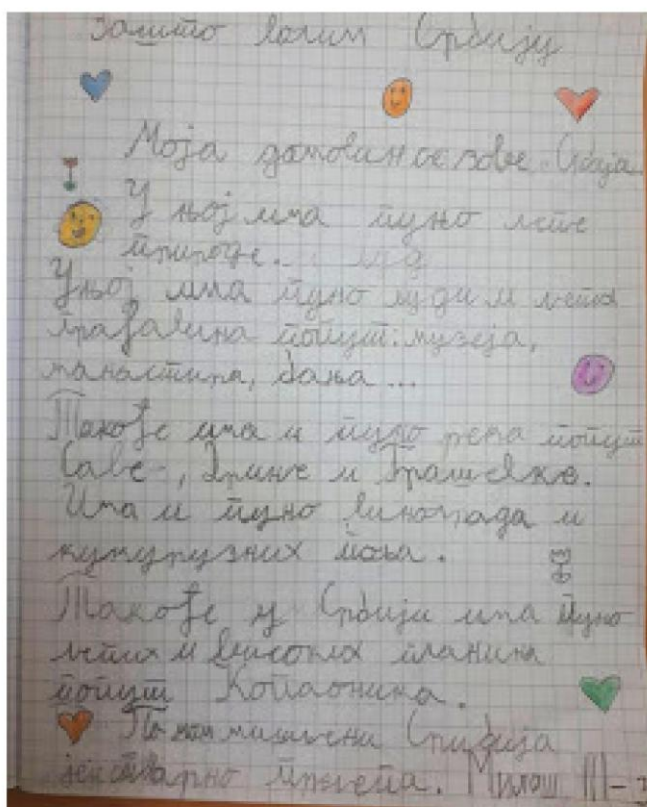 Зашто волим Србију
Моја домовина се зове Србија
У њој има пуно лепе
природе.
У њој има пуно људи и лепих
грађевина попут: музеја,
манастира, бања...
Такође има и пуно река попут
Саве, Дрине и
Има и пуно винограда и
кукурузних поља.
Такође у Србији има пуно
лепих и високих планина
попут Копаоника.
По мом
је стварно прелепа. Милош III-